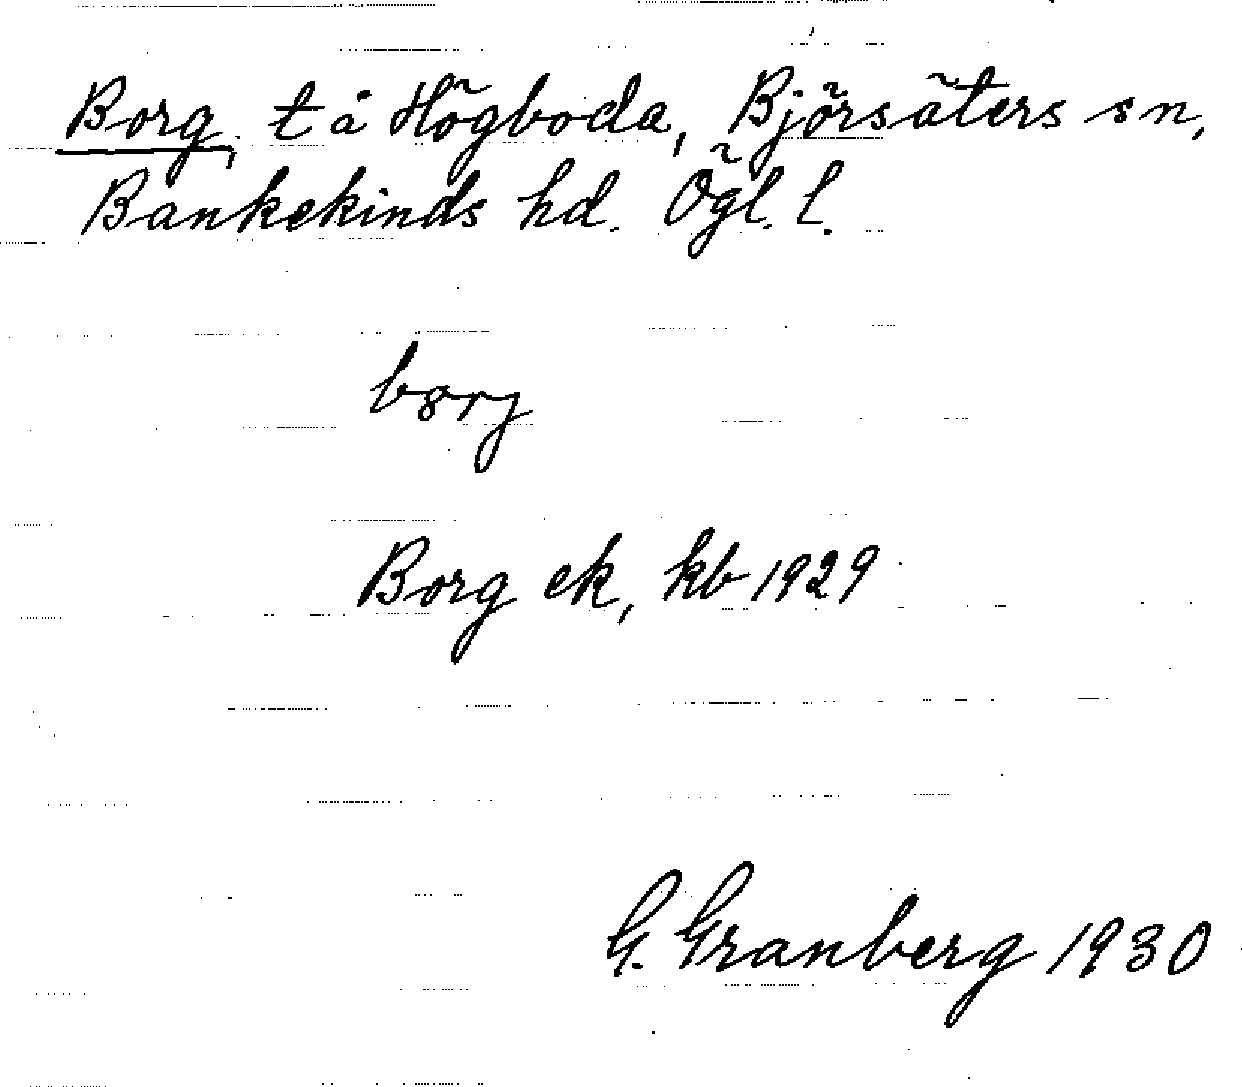 Borg, t å Högboda, Björsäters sn,
Bankekinds hd. Ögl. l.
bɞrj
Borg ek, kb 1929
G. Granberg 1930